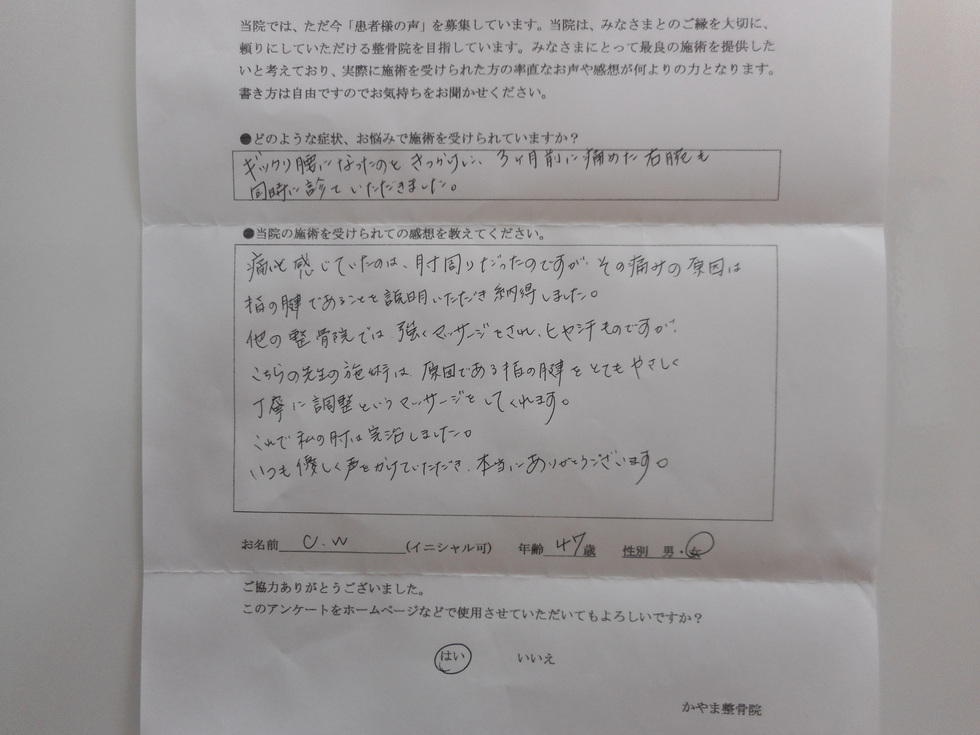 当院では、ただ今「患者様の声」を募集しています。当院は、みなさまとのご縁を大切に、
頼りにしていただける整骨院を目指しています。みなさまにとって最良の施術を提供した
いと考えており、実際に施術を受けられた方の率直なお声や感想が何よりの力となります。
書き方は自由ですのでお気持ちをお聞かせください。
●どのような症状、お悩みで施術を受けられていますか？
ギックリ腰になったのをきっかけに、3ヶ月前に痛めた右腕も
同時に診ていただきました。
●当院の施術を受けられての感想を教えてください。
痛いと感じていたのは、肘周りだったのですが、その痛みの原因は
指の腱であることを説明いただき納得しました。
他の整骨院では、強くマッサージをされ、ヒヤ汗ものですが、
こちらの先生の施術は、原因である指の腱をとてもやさしく
丁寧に調整というマッサージをしてくれます。
これで私の肘は完治しました。
いつも優しく声をかけていただき、本当にありがとうございます。
お名前 C.W (イニシャル可) 年齢 47歳 性別 男・女
ご協力ありがとうございました。
このアンケートをホームページなどで使用させていただいてもよろしいですか？
はい いいえ
かやま整骨院